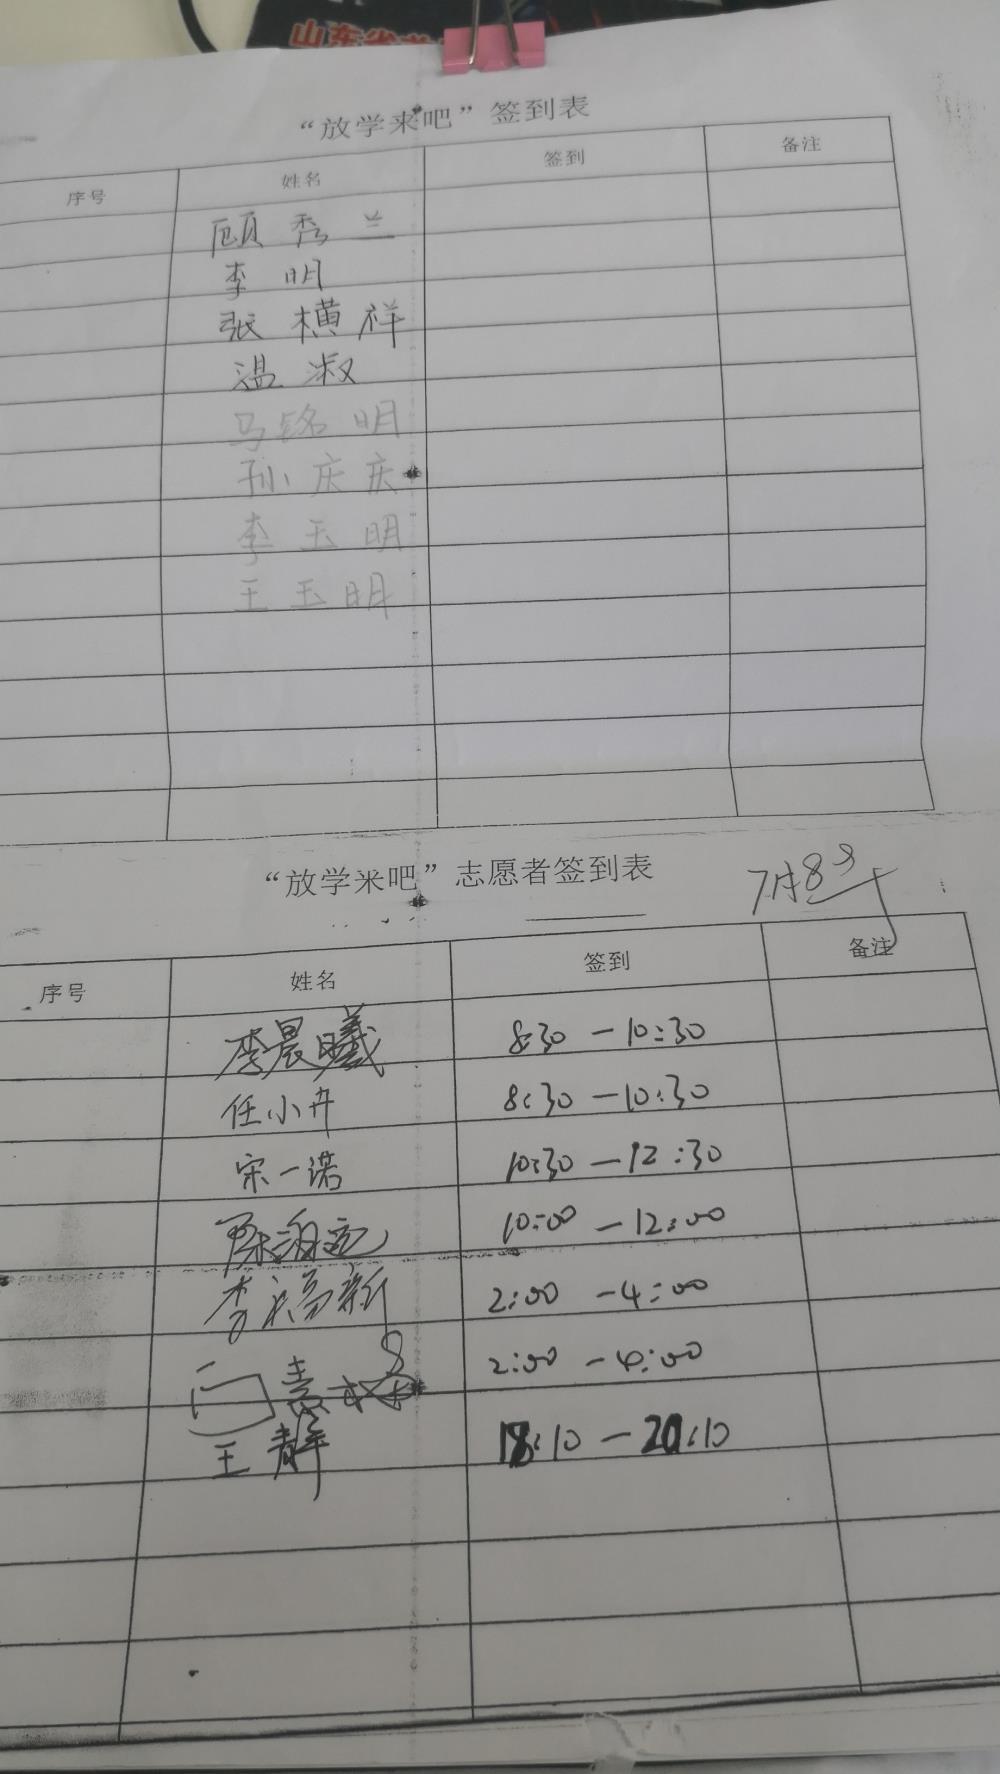 山东省
“放学来吧”签到表
序号 姓名 签到 备注
顾秀兰
李明
张横祥
温淑
马铭明
孙庆庆
李玉明
王玉明
“放学来吧”志愿者签到表 7月8号
序号 姓名 签到 备注
李晨曦 8:30 — 10:30
任小卉 8:30 — 10:30
宋一诺 10:30 — 12:30
10:00 — 12:00
李福新 2:00 — 4:00
2:00 — 4:00
王静 18:10 — 20:10